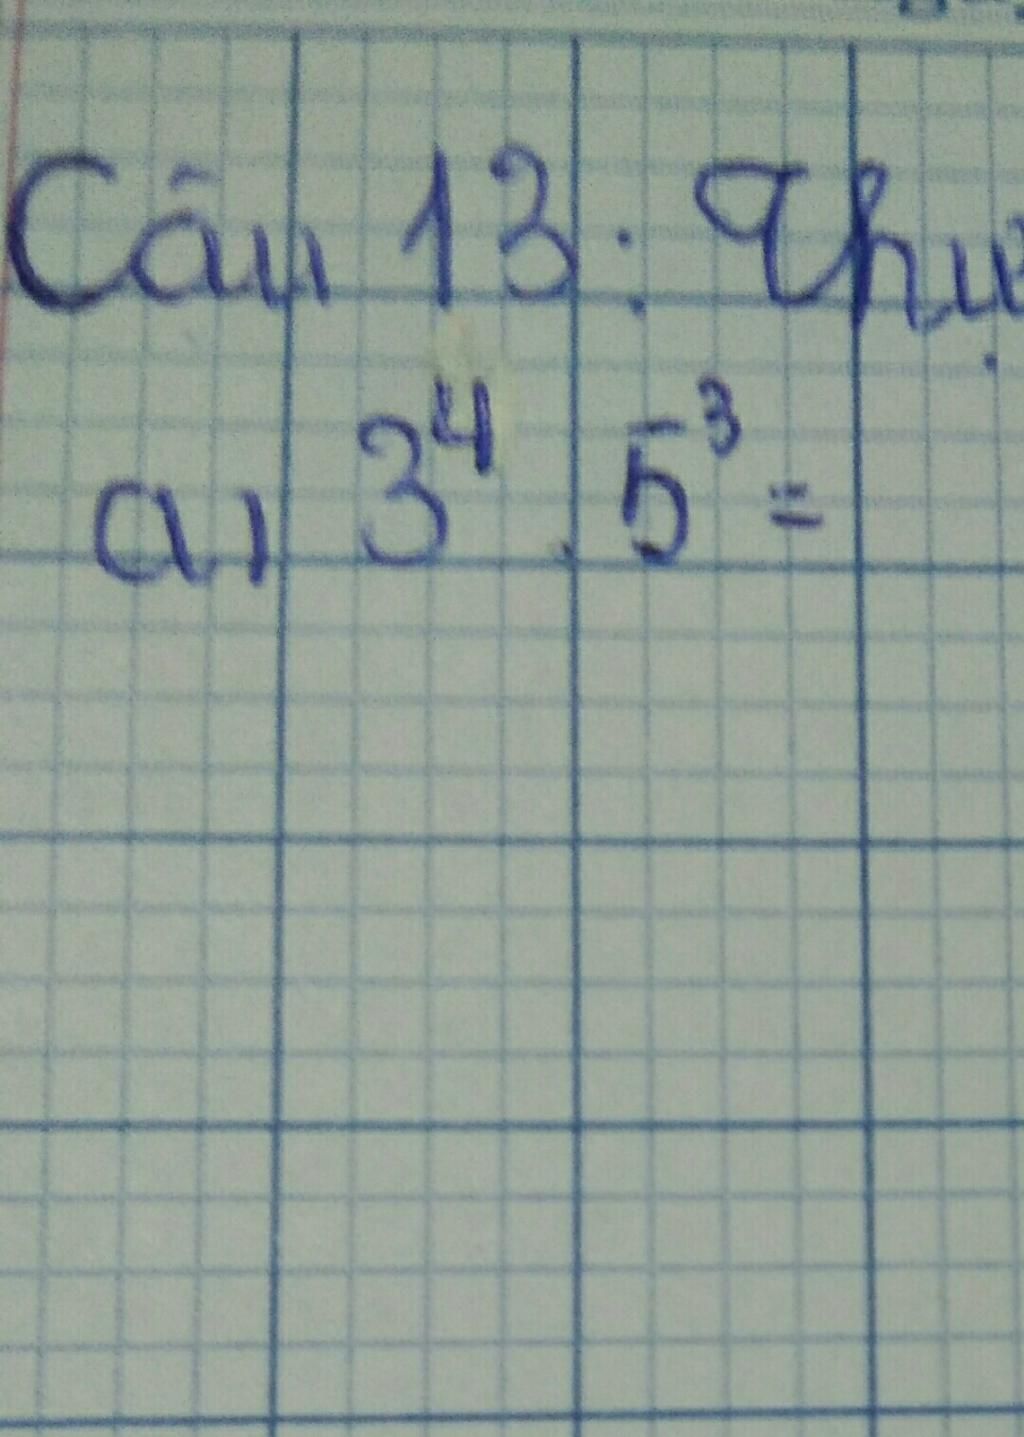 Câu 13: Thự
a, 3⁴ . 5³ =